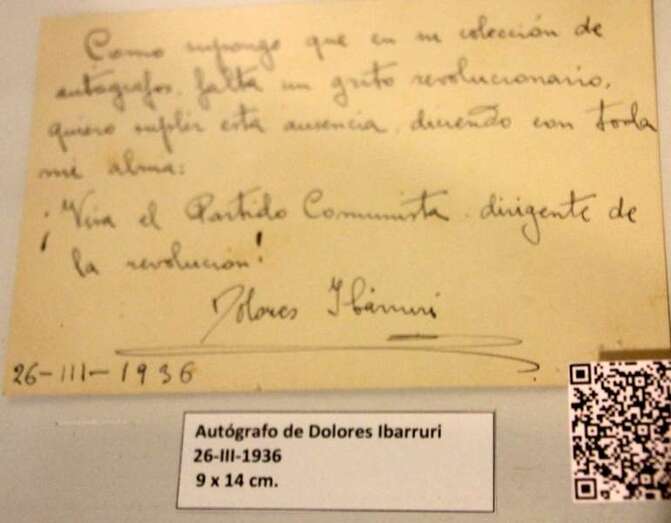 Como supongo que en su colección de
autógrafos, falta un grito revolucionario,
quiero suplir esta ausencia, diciendo con toda
mi alma:
¡Viva el Partido Comunista dirigente de
la revolución!
Dolores Ibárruri
26-III-1936
Autógrafo de Dolores Ibarruri
26-III-1936
9 x 14 cm.